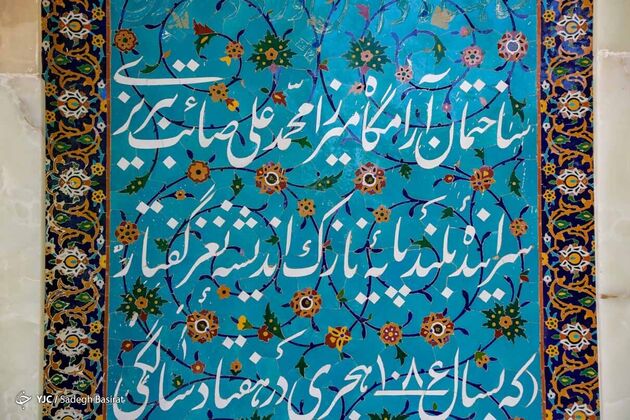 ساختمان آرامگاه میرزا محمّد علی صائب تبریزی
سرایندهٔ بلند پایهٔ نازک اندیشهٔ نغز گفتار
که بسال ۱۰۸۶ هجری در هفتاد سالگی
YJC / Sadegh Basirat